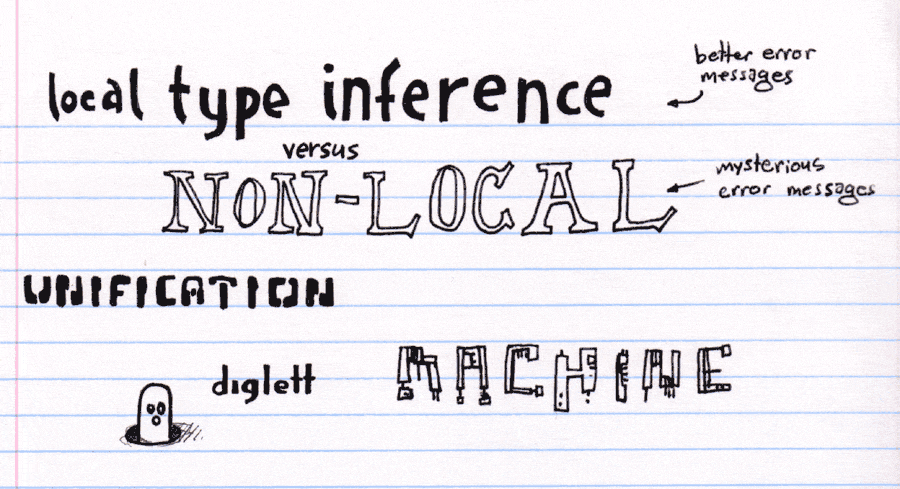 local type inference
better error
messages
versus
NON-LOCAL
mysterious
error messages
UNIFICATION
diglett
MACHINE